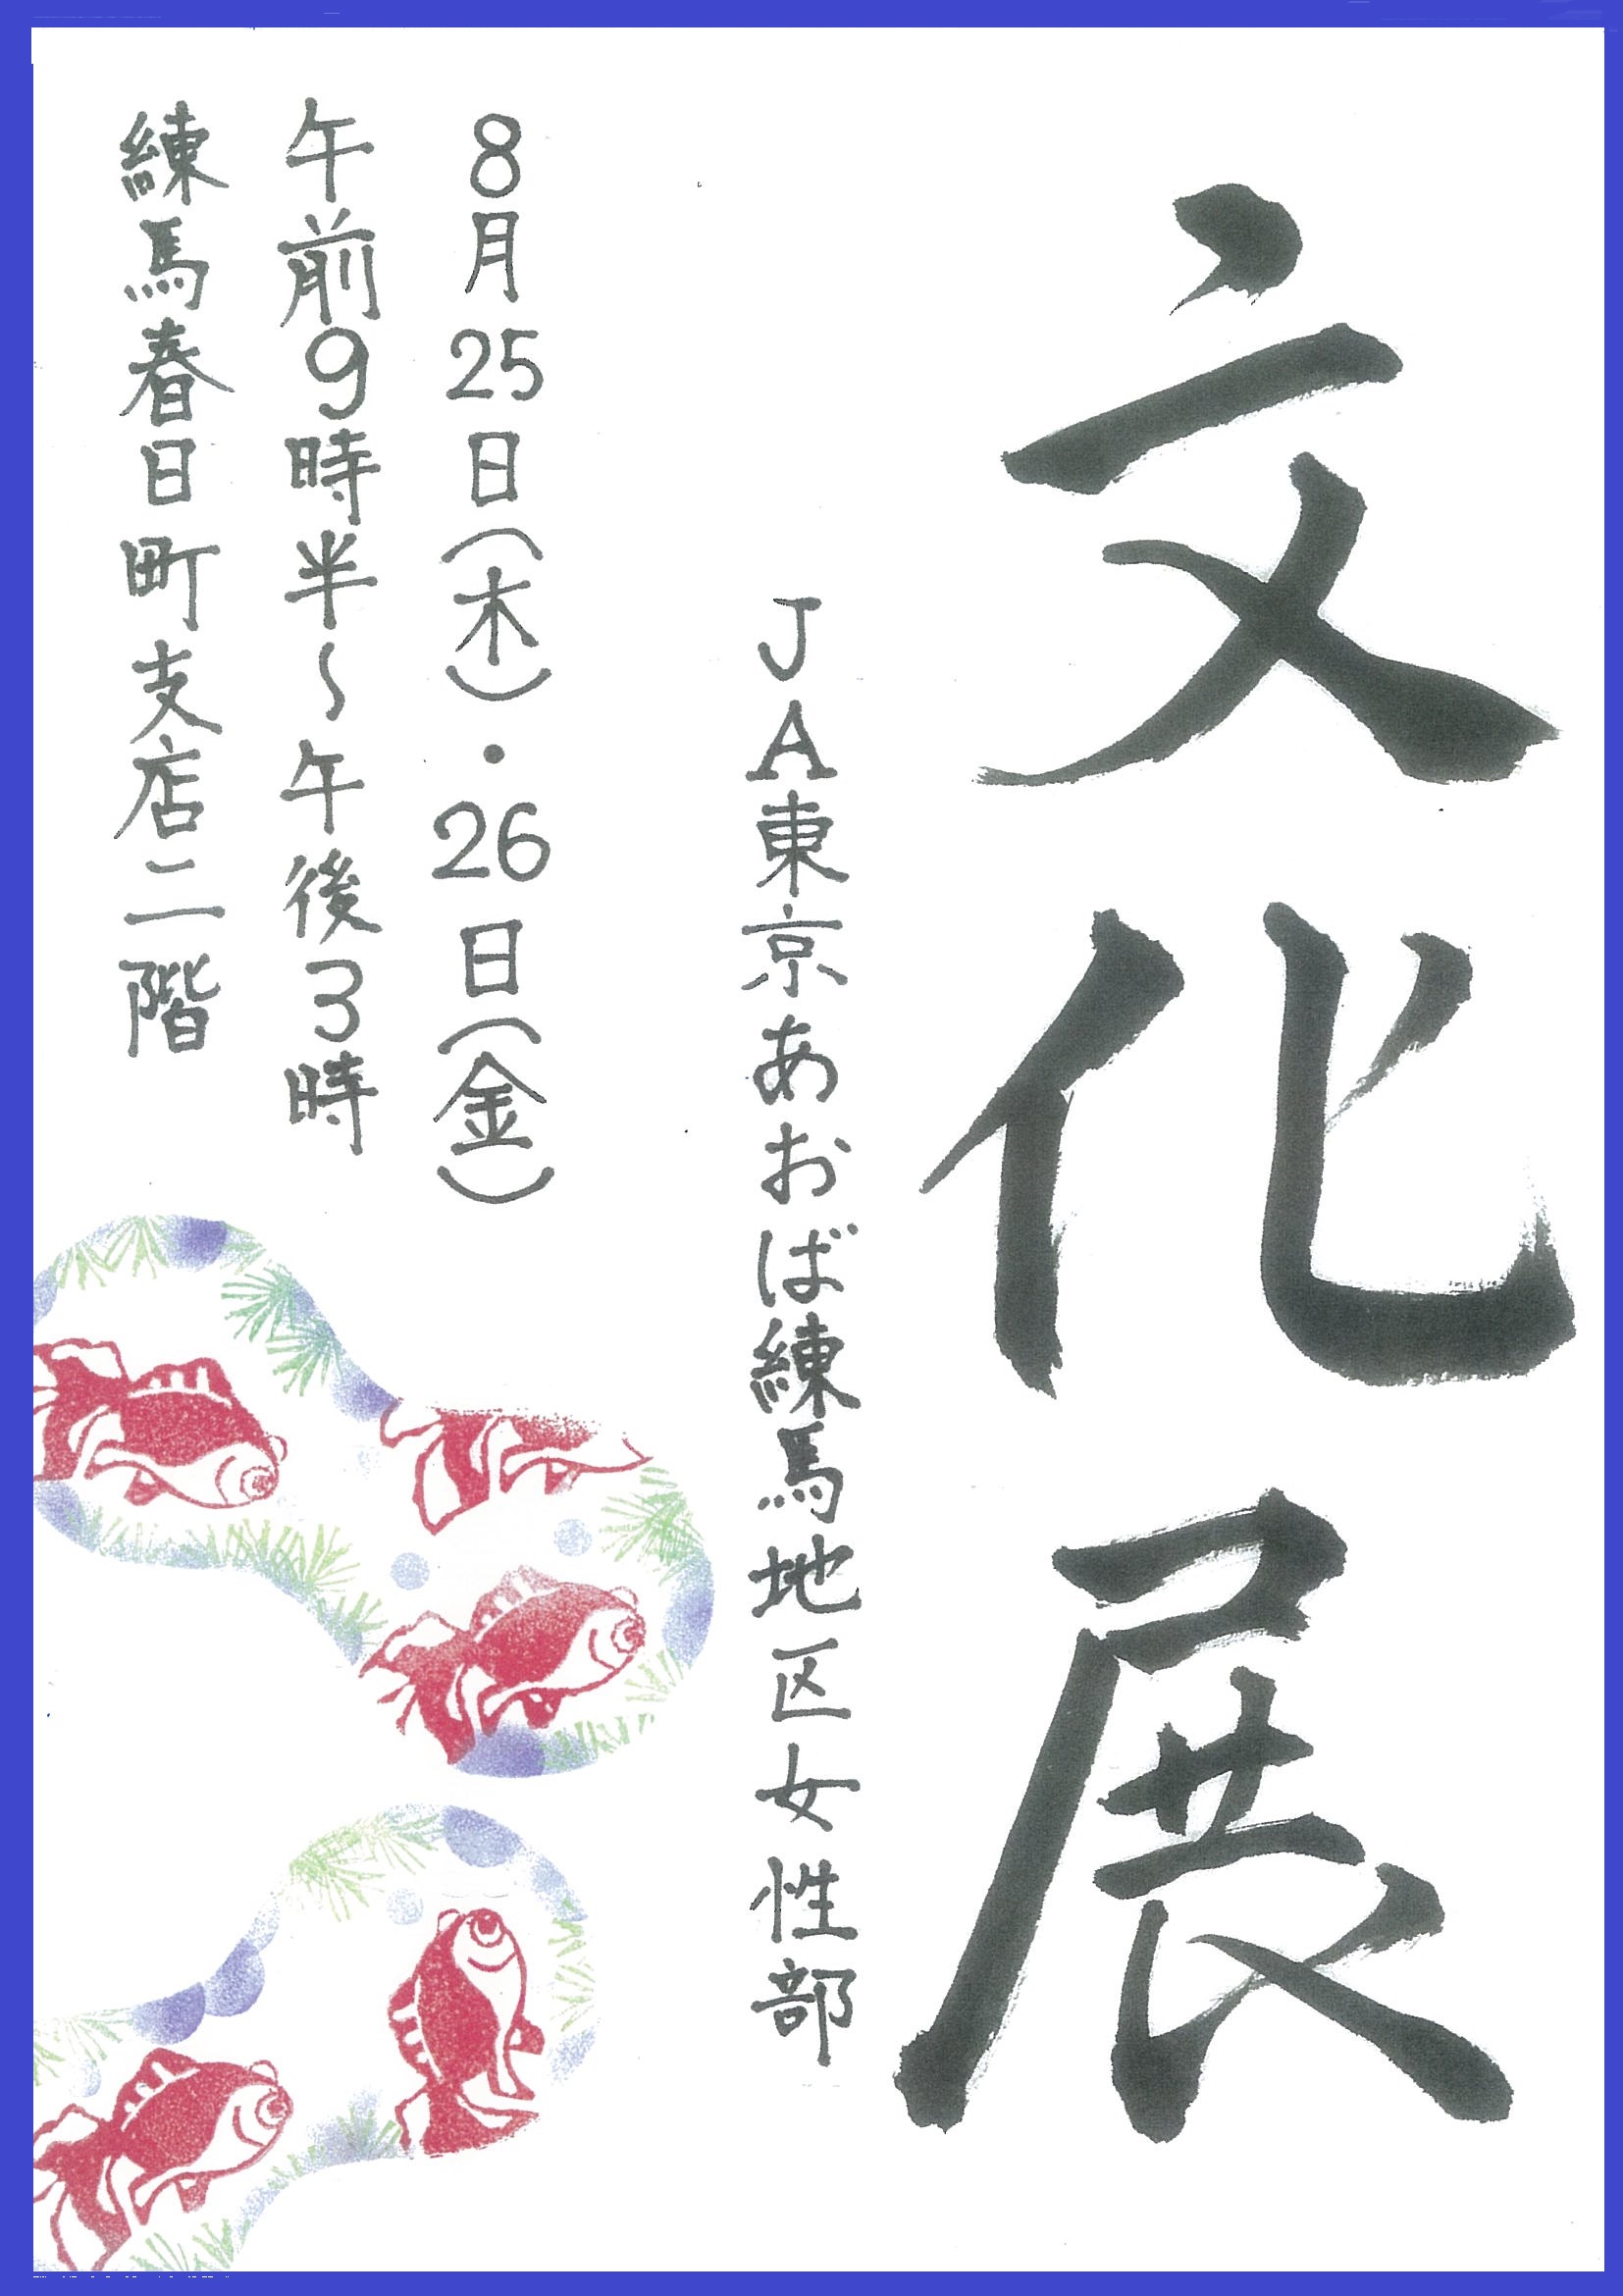 文化展
JA東京あおば練馬地区女性部
8月25日(木)・26日(金)
午前9時半～午後3時
練馬春日町支店二階